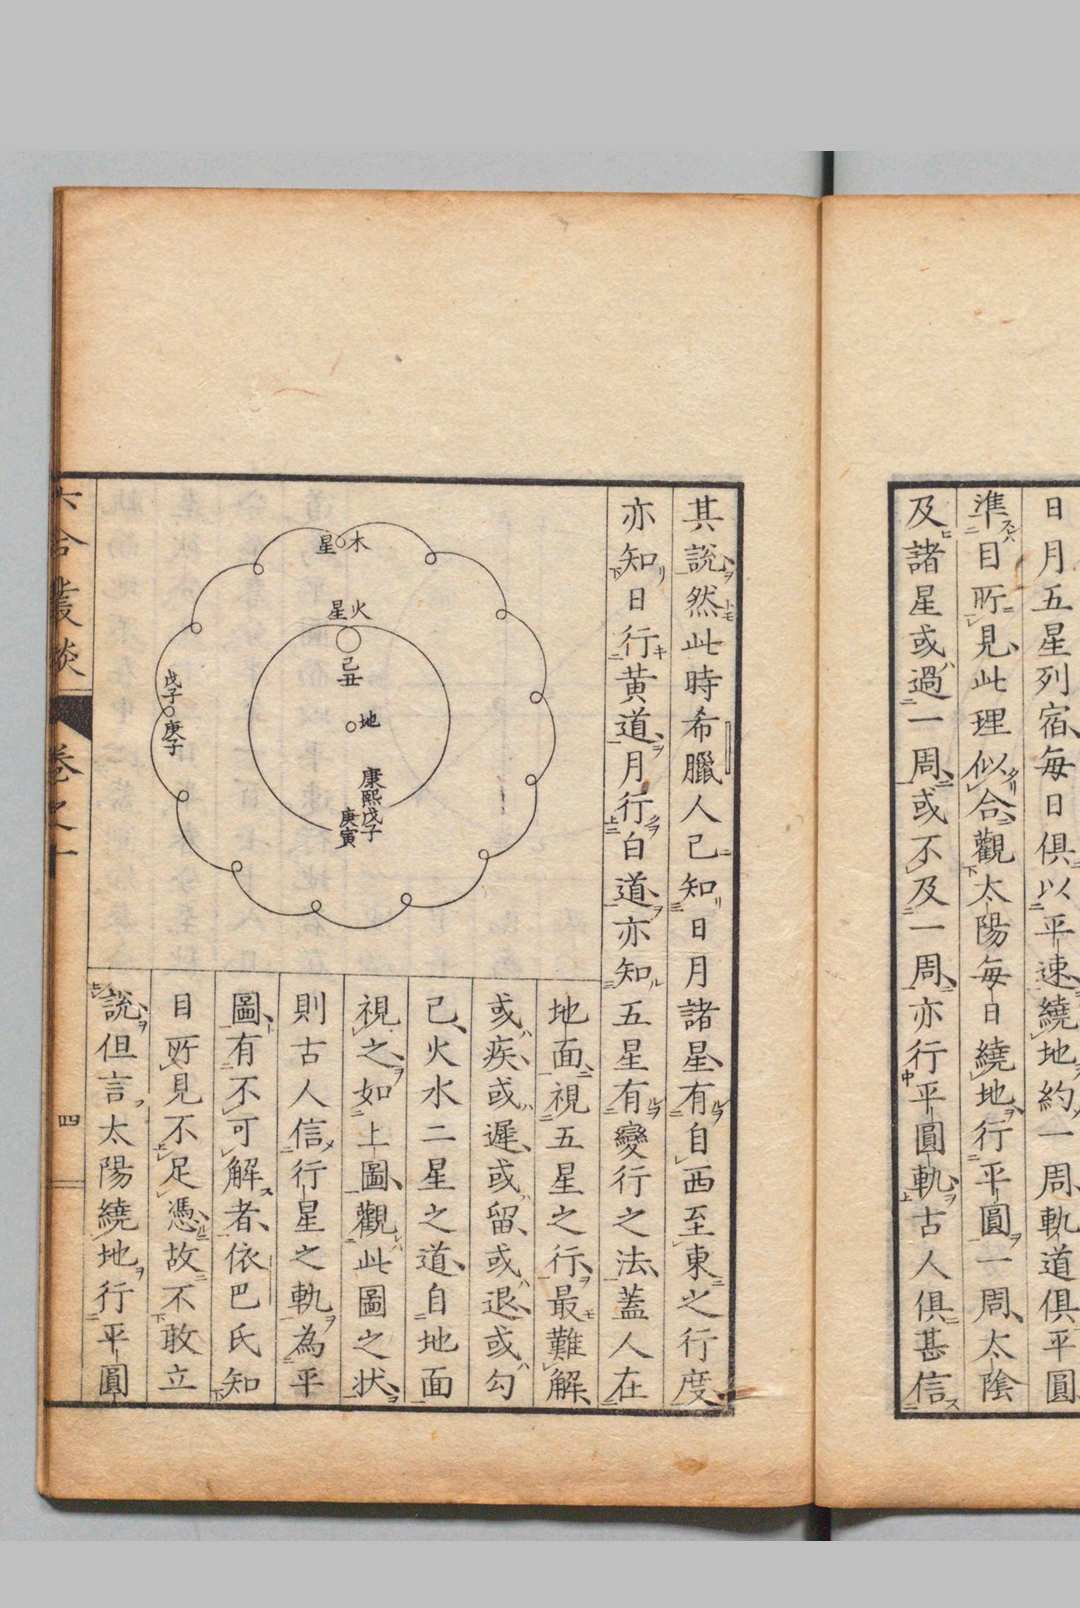 日月五星列宿每日俱以平速繞地約一周軌道俱平圓
準目所見此理似合觀太陽每日繞地行平圓一周太陰
及諸星或過一周或不及一周亦行平圓軌古人俱甚信
其說然此時希臘人已知日月諸星有自西至東之行度
亦知日行黃道月行白道亦知五星有變行之法蓋人在
地面視五星之行最難解
或疾或遲或留或退或勾
己火水二星之道自地面
視之如上圖觀此圖之狀
則古人信行星之軌為平
圖有不可解者依巴氏知
目所見不足憑故不敢立
說但言太陽繞地行平圓
木星
火星
己丑
地
康熙戊子
庚寅
戊子
庚子
六合叢談
卷之十
四